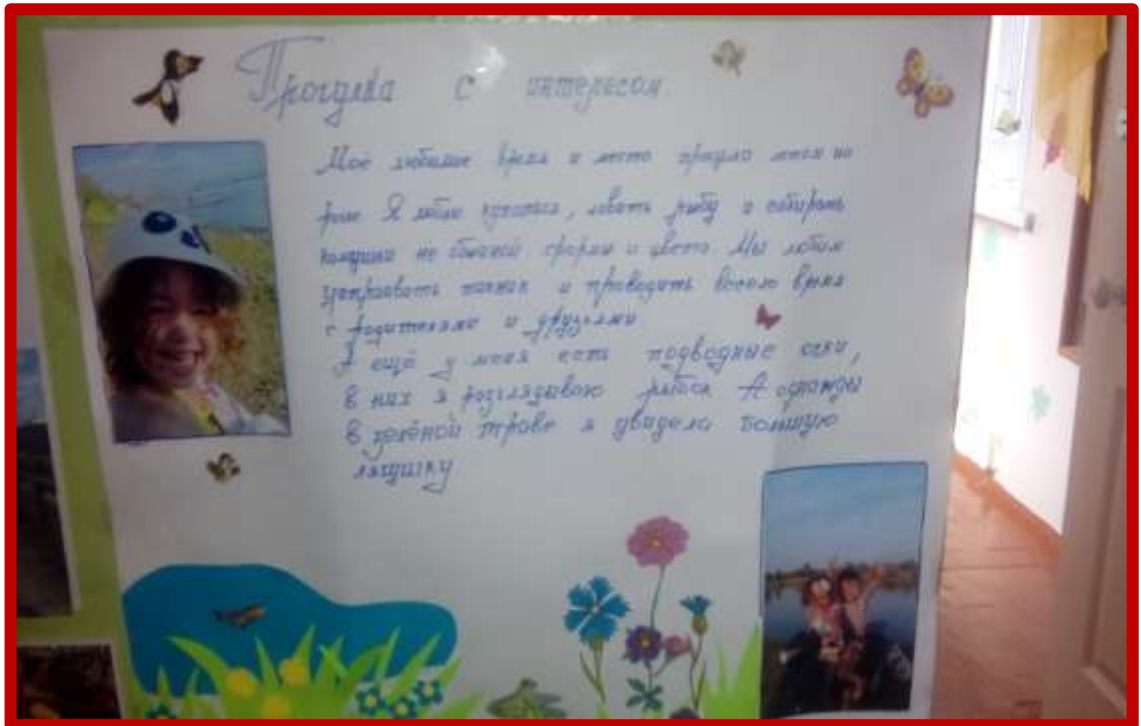 Прогулка с интересом
Моё любимое время и место прогулка летом на
реке Я люблю купаться, ловить рыбу и собирать
камушки не обычной формы и цвета. Мы любим
устраивать пикник и проводить весело время
с родителями и друзьями
А ещё у меня есть подводные очки,
в них я розглядываю рыбок А однажды
в зелёной траве я увидела большую
лягушку